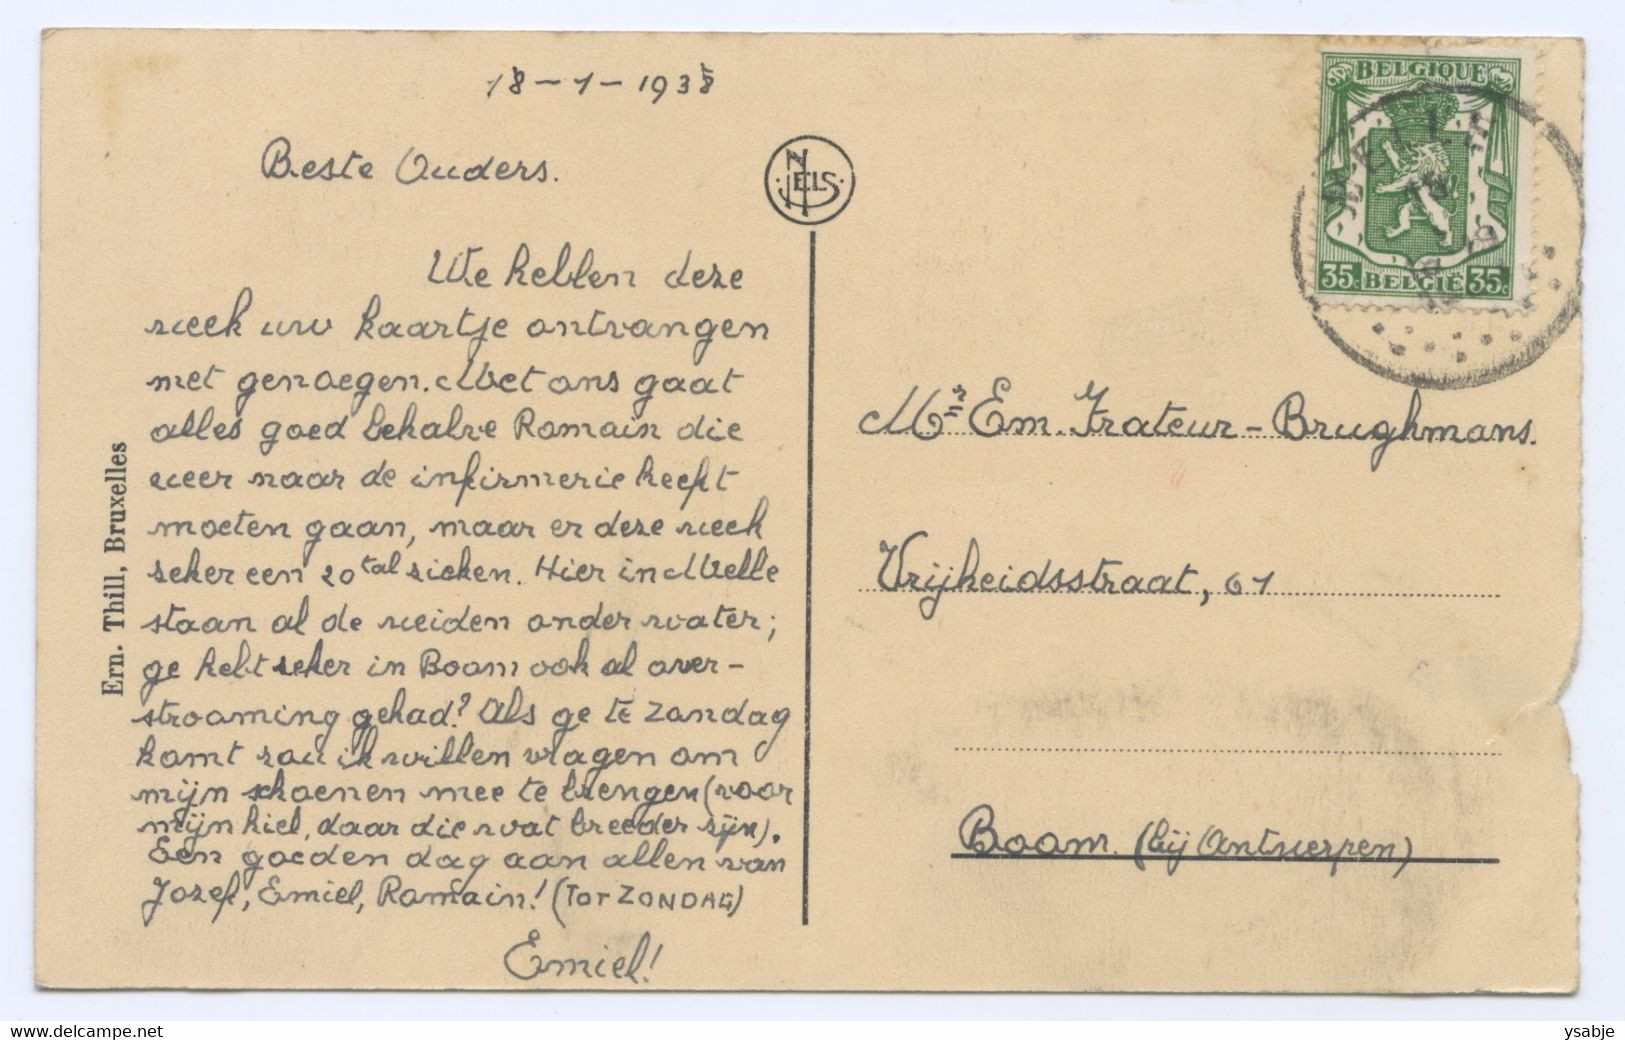 18-1-1938
Beste Ouders.
We hebben deze
week uw kaartje ontvangen
met genoegen. Met ons gaat
alles goed behalve Romain die
weer naar de infirmerie heeft
moeten gaan, maar er deze week
zeker een 20tal zieken. Hier in Melle
staan al de weiden onder water;
ge hebt zeker in Boom ook al over-
strooming gehad? Als ge te zondag
komt zou ik willen vragen om
mijn schoenen mee te brengen (voor
mijn hiel, daar die wat breeder zijn).
Een goeden dag aan allen van
Jozef, Emiel, Romain! (TOT ZONDAG)
Emiel!
Ern. Thill, Bruxelles
NELS
BELGIQUE
35c BELGIË 35c
Mr Em. Frateur-Brughmans.
Vrijheidsstraat, 61
Boom. (bij Antwerpen)
ysabje